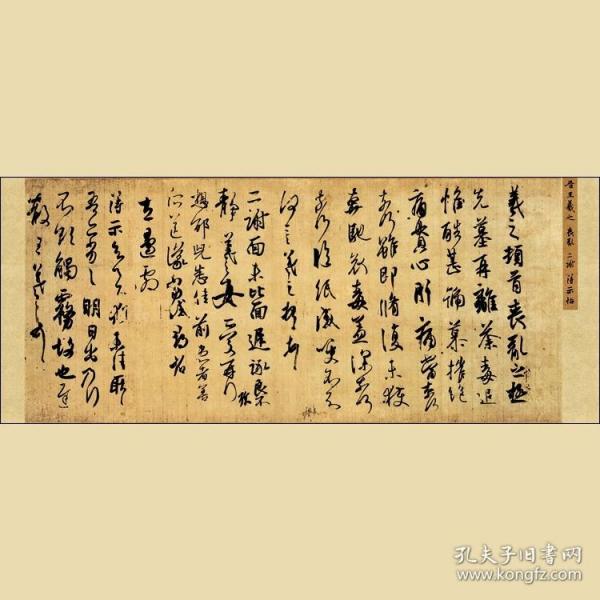 晉王羲之 喪亂 二謝 得示帖
羲之頓首喪亂之極
先墓再離荼毒追
惟酷甚號慕摧絕
痛貫心肝痛當奈何
奈何雖即脩復未獲
奔馳哀毒益深奈何
奈何臨紙感哽不知
何言羲之頓首頓首
二謝面未比面遲詠良
靜羲之女愛再拜
想邵兒悉佳前患者善
所送議當試尋省
左邊劇
得示知足下猶未佳耿耿
吾亦劣劣明日出乃行
不欲觸霧故也遲
散王羲之頓首
孔夫子旧书网
www.kongfz.com